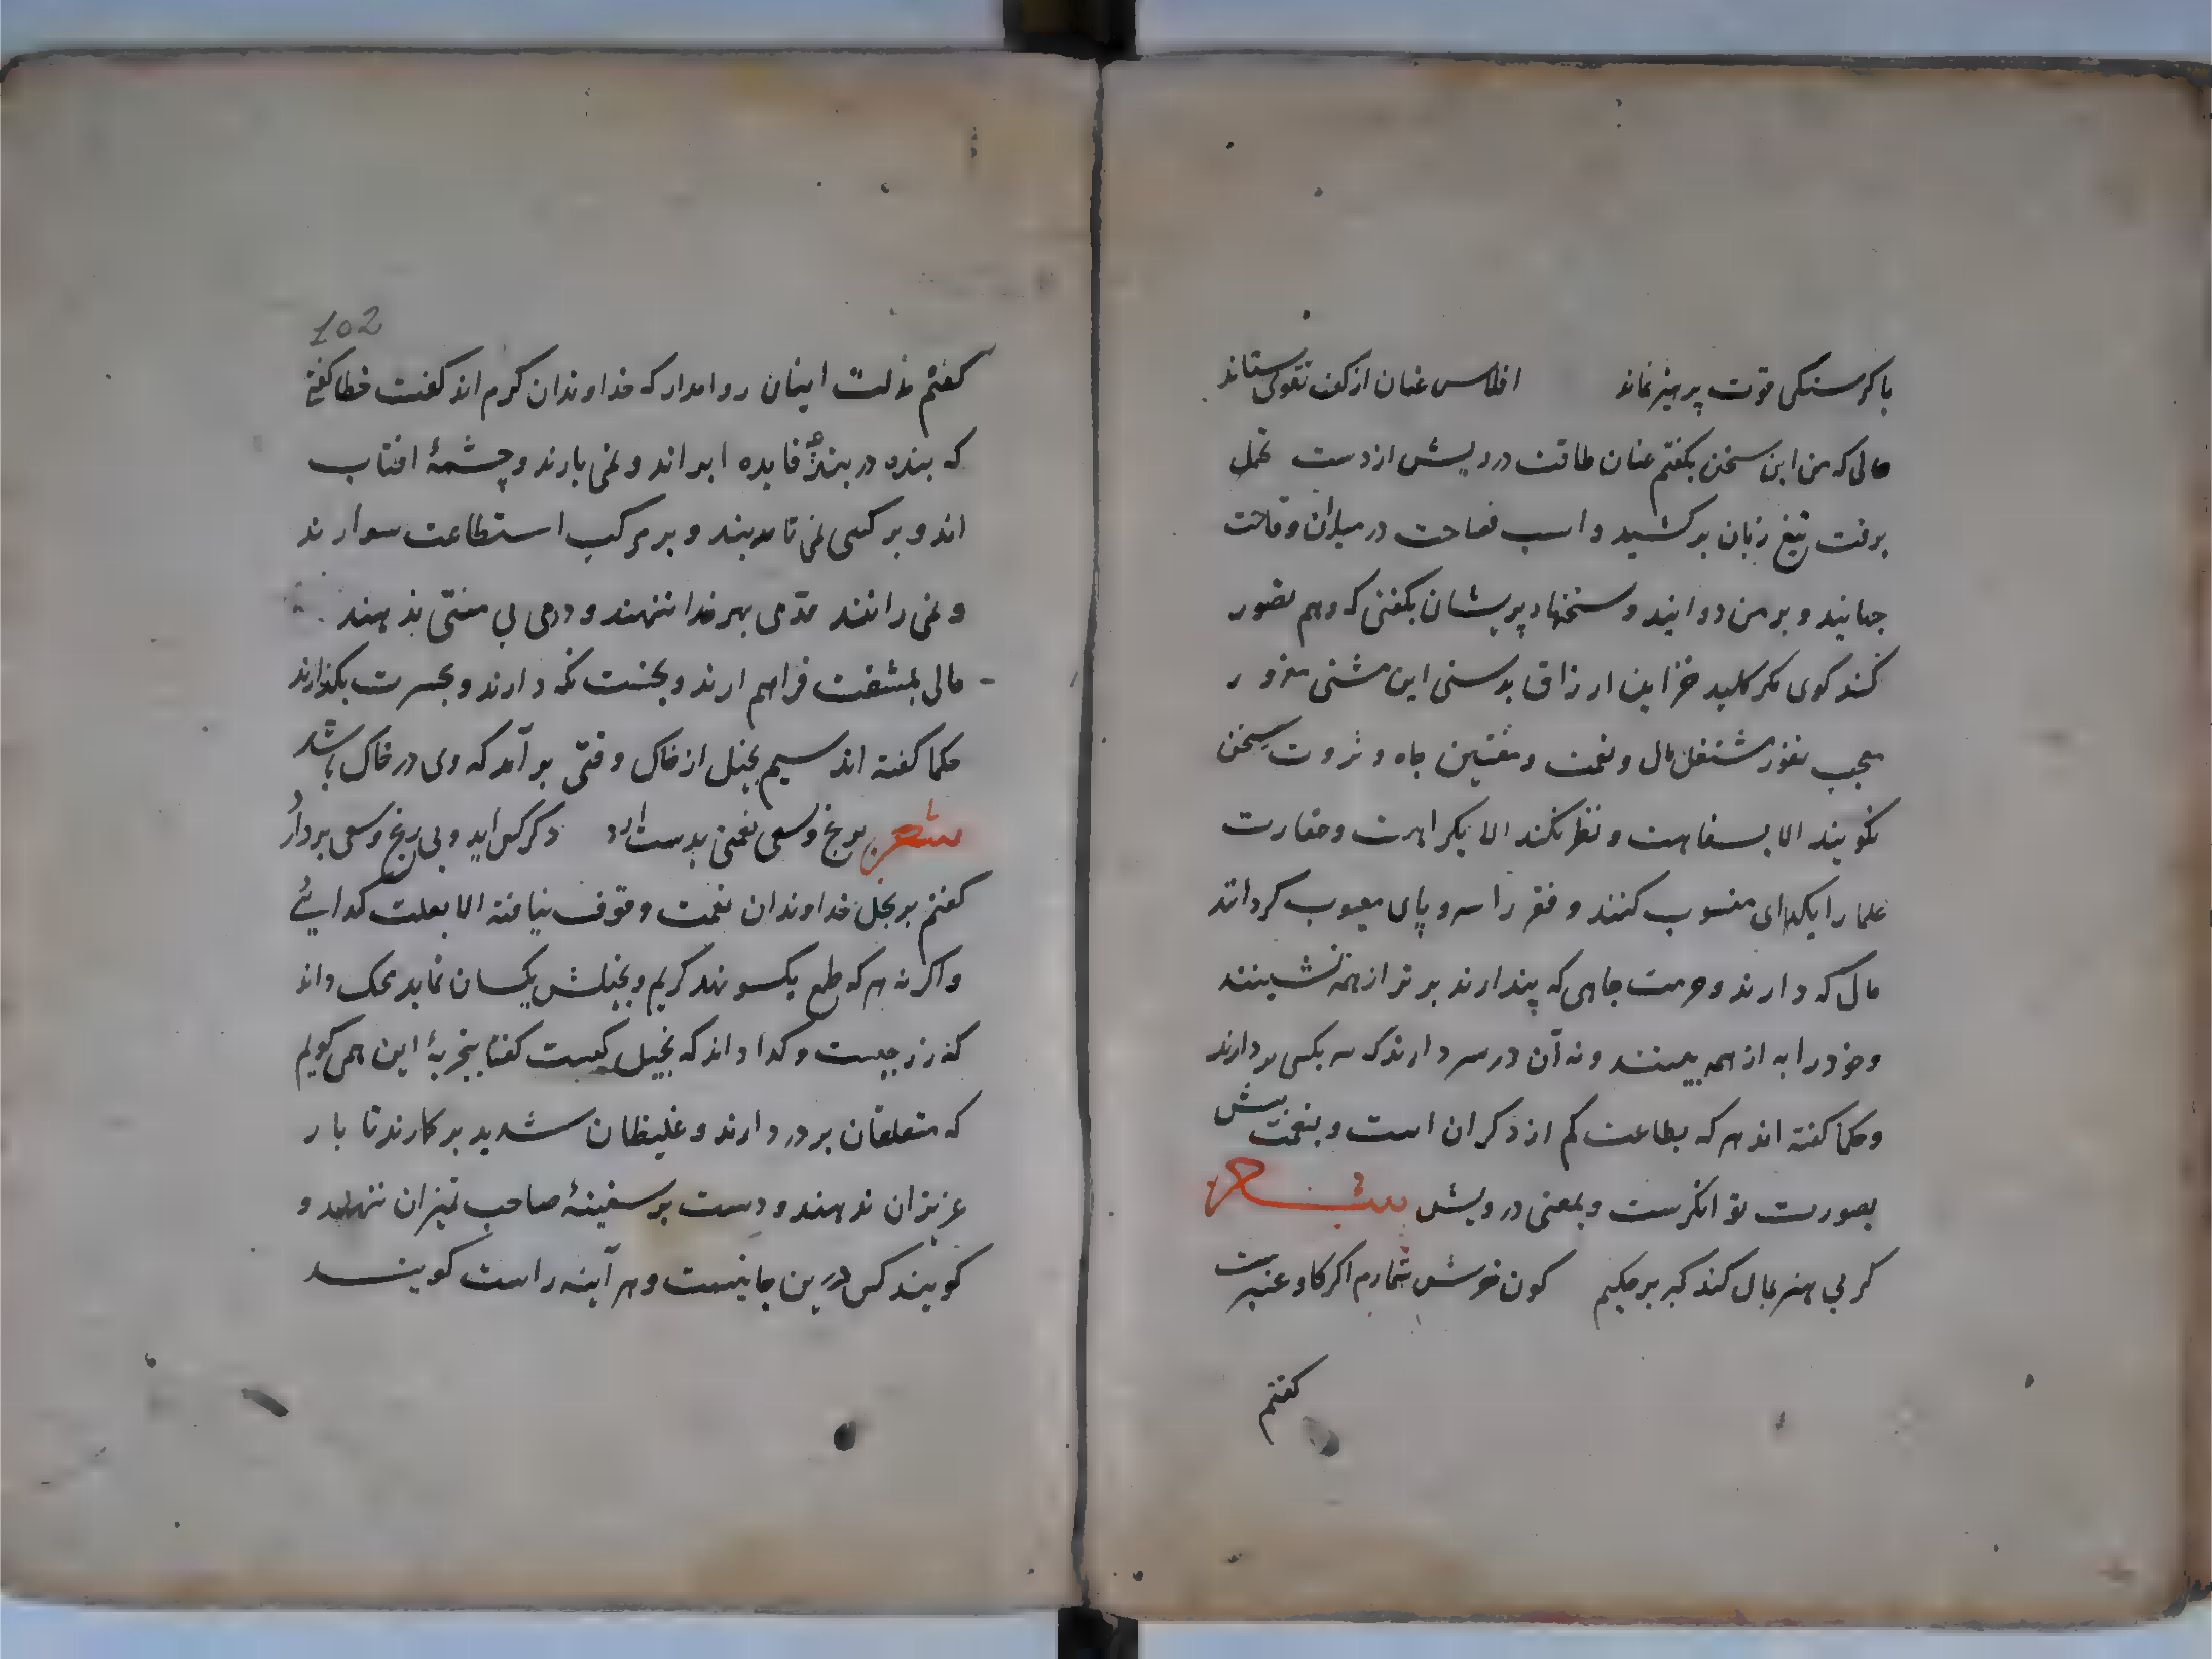 باکرسنکی قوت پرهیز نماند افلاس عنان از کف تقوی ستاند
حالی که من این سخن بکفتم عنان طاقت درویش از دست تحمل
برفت تیغ زبان برکشید و اسب فصاحت در میدان وقاحت
جهانید و بر من دوانید و سخنهاء پریشان بکفتی که وهم تصور
کند کوی مکر کلید خزاین ارزاق بدستی این مشتی مغرور
معجب نفور مشتغل مال و نعمت و مفتین جاه و ثروت سخن
نکویند الا بسفاهت و نظر نکند الا بکراهت و حقارت
علما را بکدای منسوب کنند و فقر را سر و پای معیوب کردانند
مال که دارند و حرمت جاهی که پندارند برتر از همه نشینند
و خود را به از همه بینند و نه آن در سر دارند که سر بکسی بردارند
و حکما کفته اند هر که بطاعت کم از دکران است و بنعمت بیش
بصورت توانکرست و بمعنی درویش شعر
کر بی هنر بمال کند کبر بر حکیم کون خرش شمارم اکر کاو عنبرست
کفتم
102
کفتم مذلت اینان روا مدار که خداوندان کرم اند کفت خطا کفتی
که بنده در بند فایده ابر اند و نمی بارند و چشمهٔ افتاب
اند و بر کسی نمی تابند و بر مرکب استطاعت سوارند
و نمی رانند قدمی بهر خدا ننهند و درمی بی منتی ندهند
مالی بمشقت فراهم ارند و بخست نکه دارند و بحسرت بکذارند
حکما کفته اند سیم بخیل از خاک وقتی بر آمد که وی در خاک باشد
شعر برنج و سعی نعمتی بدست ارد دکر کس اید و بی رنج و سعی بردارد
کفتم بر بخل خداوندان نعمت وقوف نیافته الا بعلت کدایئ
و اکر نه هر که طمع یکسو نهد کریم و بخیلش یکسان نماید محک داند
که زر چیست و کدا داند که بخیل کیست کفتا بتجربهٔ این همی کویم
که متعلقان بر در دارند و غلیظان شدید بر کارند تا بار
عزیزان ندهند و دست بر سفینهٔ صاحب تمیزان ننهند و
کویند کس درین جا نیست و هر آینه راست کویند